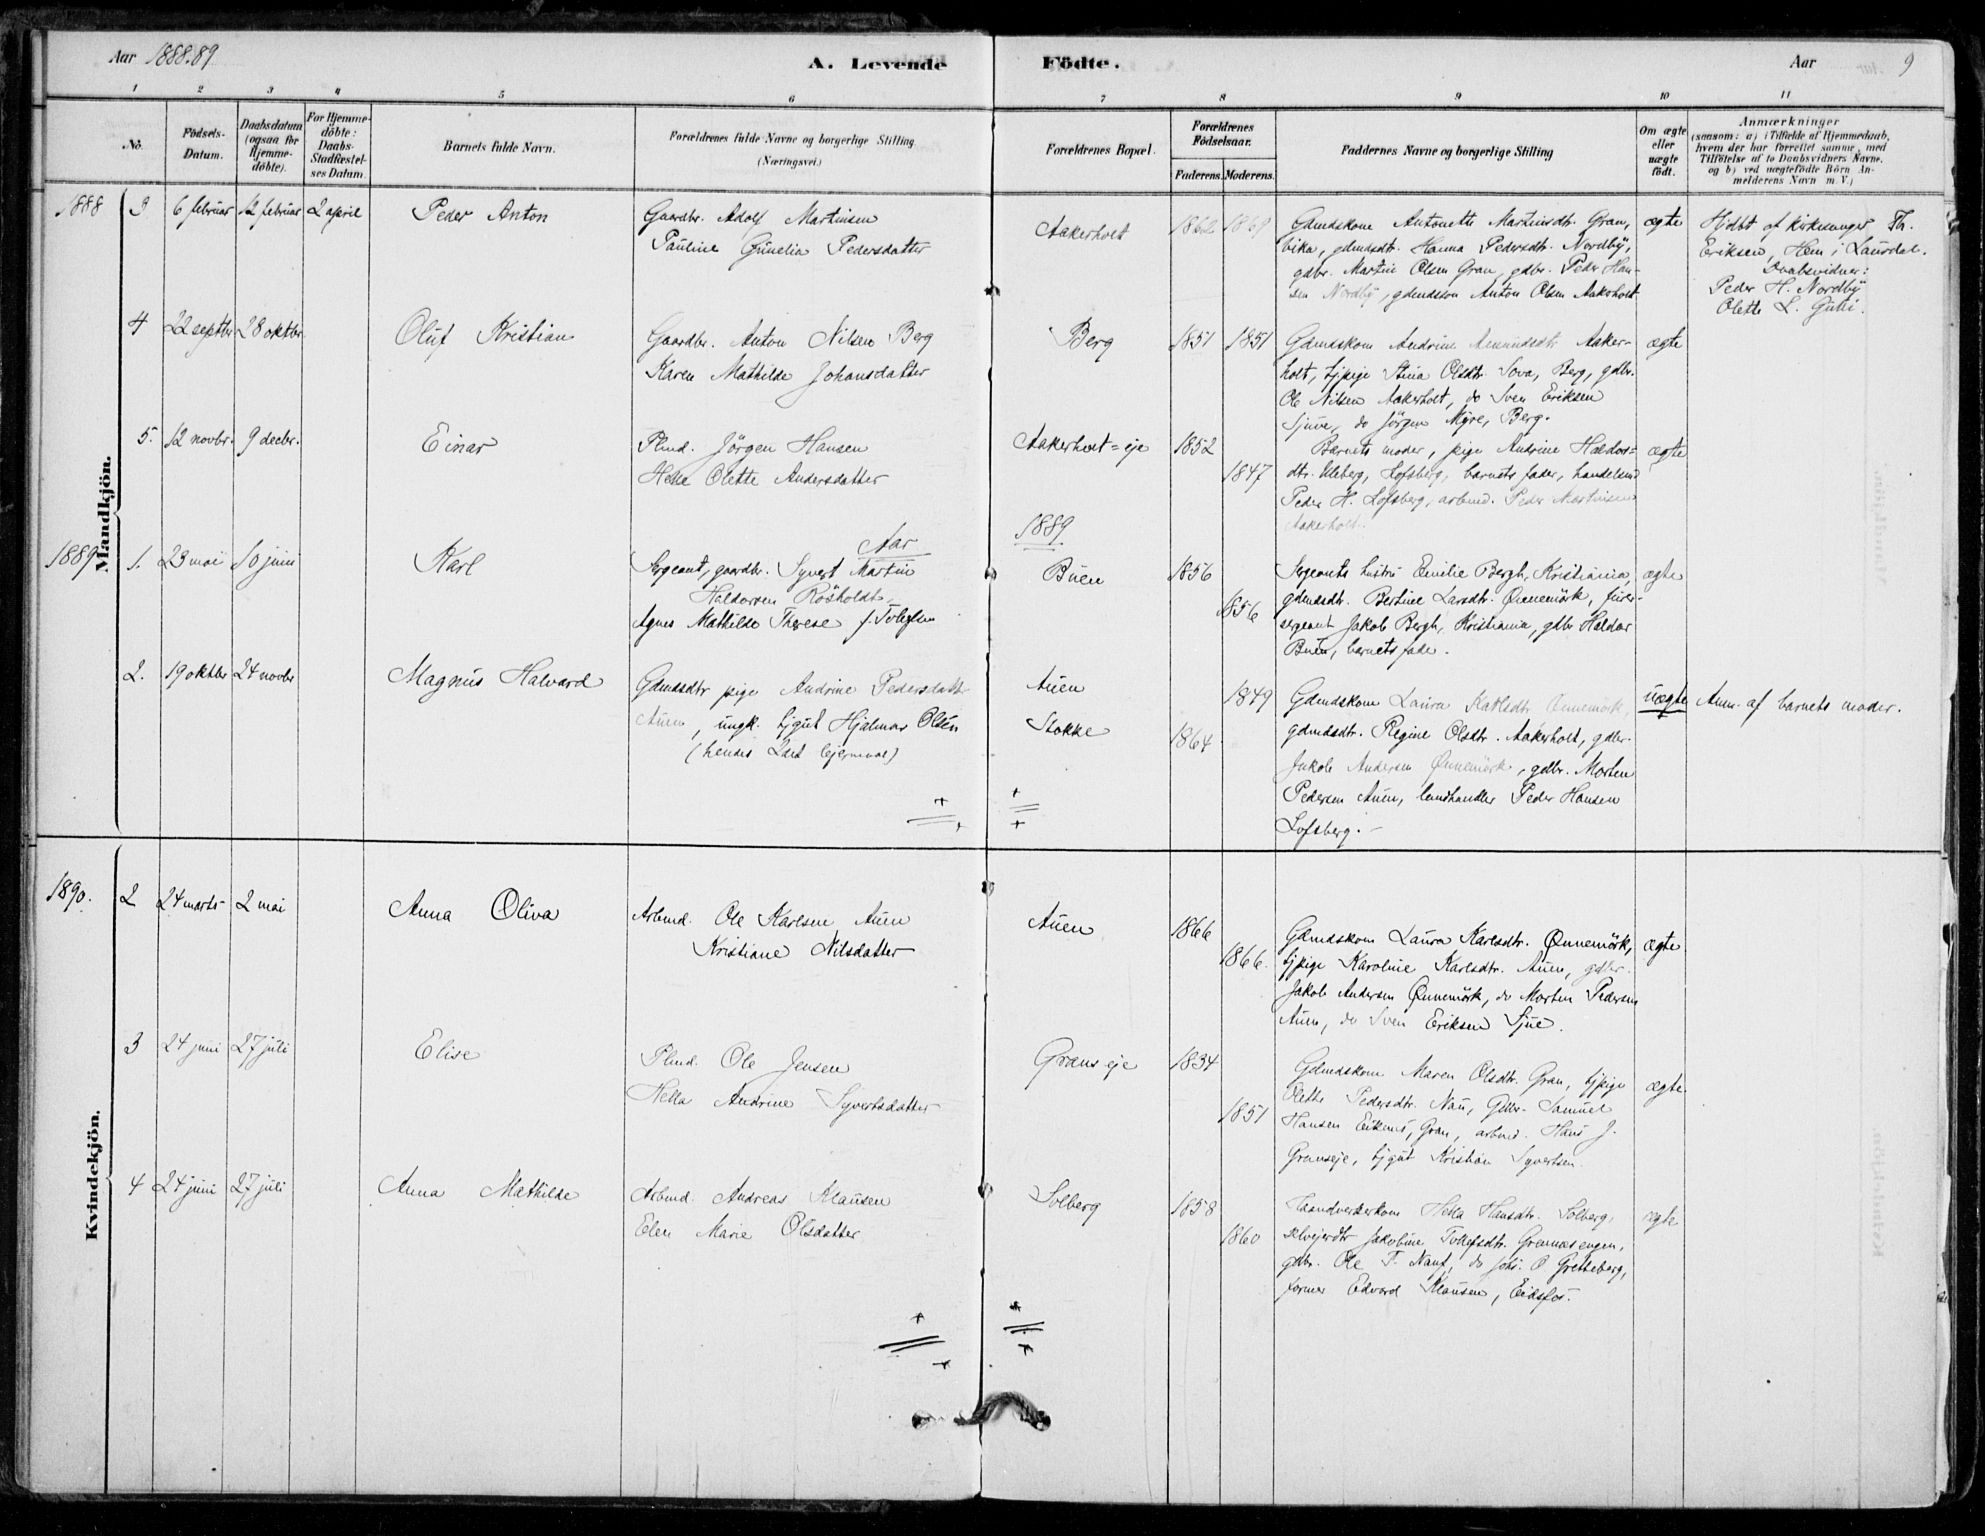 Aar 1888.89
A. Levende Födte.
Aar 9
1 2 3 4 5 6 7 8 9 10 11
No.
Födsels-Datum.
Daabsdatum (ogsaa for Hjemme-döbte).
For Hjemme-döbte: Daabs-Stadfæstel-ses Datum.
Barnets fulde Navn.
Forældrenes fulde Navne og borgerlige Stilling (Næringsvei.)
Forældrenes Bopæl.
Forældrenes Födselsaar.
Faderens. Moderens.
Faddernes Navne og borgerlige Stilling
Om ægte eller uægte födt.
Anmærkninger
(saasom: a) i Tilfælde af Hjemmedaab,
hvem der har forrettet samme, med
Tilföielse af to Daabsvidners Navne,
og b) ved uægtefödte Börn An-
melderens Navn m. V.)
Mandkjön.
1888 3 6 februar 12 februar 2 april
Peder Anton
Gaardbr. Adolf Martinsen
Pauline Gunelia Pedersdatter
Aakerholt 1862 1869
Gdmdskone Antonette Martinsdtr. Gran,
vika, gdmdsdtr. Hanna Pedersdtr. Nordby,
gdbr. Martin Olsen Gran, gdbr. Peder Han-
sen Nordby, gdmdssön Anton Olsen Aakerholt
ægte
Hjdbt af kirkesanger Th.
Eriksen, Hem i Laurdal.
Daabsvidner:
Peder H. Nordby
Olette L. Guli.
4 22 septbr 28 oktbr.
Oluf Kristian
Gaardbr. Anton Nilsen Berg
Karen Mathilde Johansdatter
Berg 1851 1851
Gdmdskone Andrine Amundsdtr Aaker-
holt, tjpige Stina Olsdtr. Sova, Berg, gdbr.
Ole Nilsen Aakerholt, do Sven Eriksen
Sjuve, do Jörgen Myre, Berg.
ægte
5. 12 novbr. 9 decbr.
Einar
Plmd. Jörgen Hansen
Hella Olette Andersdatter
Aakerholt=eje 1852 1847
Barnets moder, pige Andrine Haldors=
dtr. Kleberg, Lofsberg, barnets fader, handelsmd
Peder H. Lofsberg, arbmd. Peder Martinsen
Aakerholt.
ægte
Aar 1889
1889 1. 23 mai 10 juni
Karl
Sergeant, gaardbr. Syvert Martin
Haldorsen Rosholdt,
Agnes Mathilde Therese f. Tolefsen
Buen 1856 1856
Sergeants hustru Emilie Bergh, Kristiania,
gdmdsdtr. Bertine Larsdtr. Önnemörk, furer-
sergeant Jakob Bergh, Kristiania, gdbr Haldor
Buen, barnets fader.
ægte
2. 19 oktbr 24 novbr
Magnus Halvard
Gdmdsdtr pige Andrine Pedersdatt.
Auen, ungk. tjgut Hjalmar Olsen
(hendes 2det lejermaal)
Auen
Stokke 1864 1849
Gdmdskone Laura Karlsdtr Önnemörk,
gdmdsdtr. Regine Olsdtr. Aakerholt, gdbr.
Jakob Andersen Önnemörk, gdbr. Morten
Pedersen Auen, landhandler Peder Hansen
Lofsberg. –
uægte
Anm. af barnets moder.
Kvindekjön.
1890. 2 24 marts 2 mai
Anna Oliva
Arbmd. Ole Karlsen Auen
Kristiane Nilsdatter
Auen 1866 1866.
Gdmdskone Laura Karlsdtr. Önnemörk,
tjpige Karoline Karlsdtr. Auen, gdbr.
Jakob Andersen Önnemörk, do Morten Pedersen
Auen, do Sven Eriksen Sjue.
ægte
3 24 juni 27 juli
Elise
Plmd. Ole Jensen
Hella Andrine Syvertsdatter
Granseje 1834 1851
Gdmdskone Maren Olsdtr. Gran, tjpige
Olette Pedersdtr. Nau, Gdbr. Samuel
Hansen Eikenes, Gran, arbmd. Hans J.
Granseje, tjgut Kristian Syvertsen.
ægte
4 24 juni 27 juli
Anna Mathilde
Arbmd. Andreas Klausen
Elen Marie Olsdatter
Solberg 1858 1860
Haandverkerkone Hella Hansdtr. Solberg,
selvejerdtr Jakobine Tollefsdtr. Grennesengen,
gdbr. Ole T. Nauf, do Johs. O Gretteberg,
former Edvard Klausen, Eidsfos.
ægte